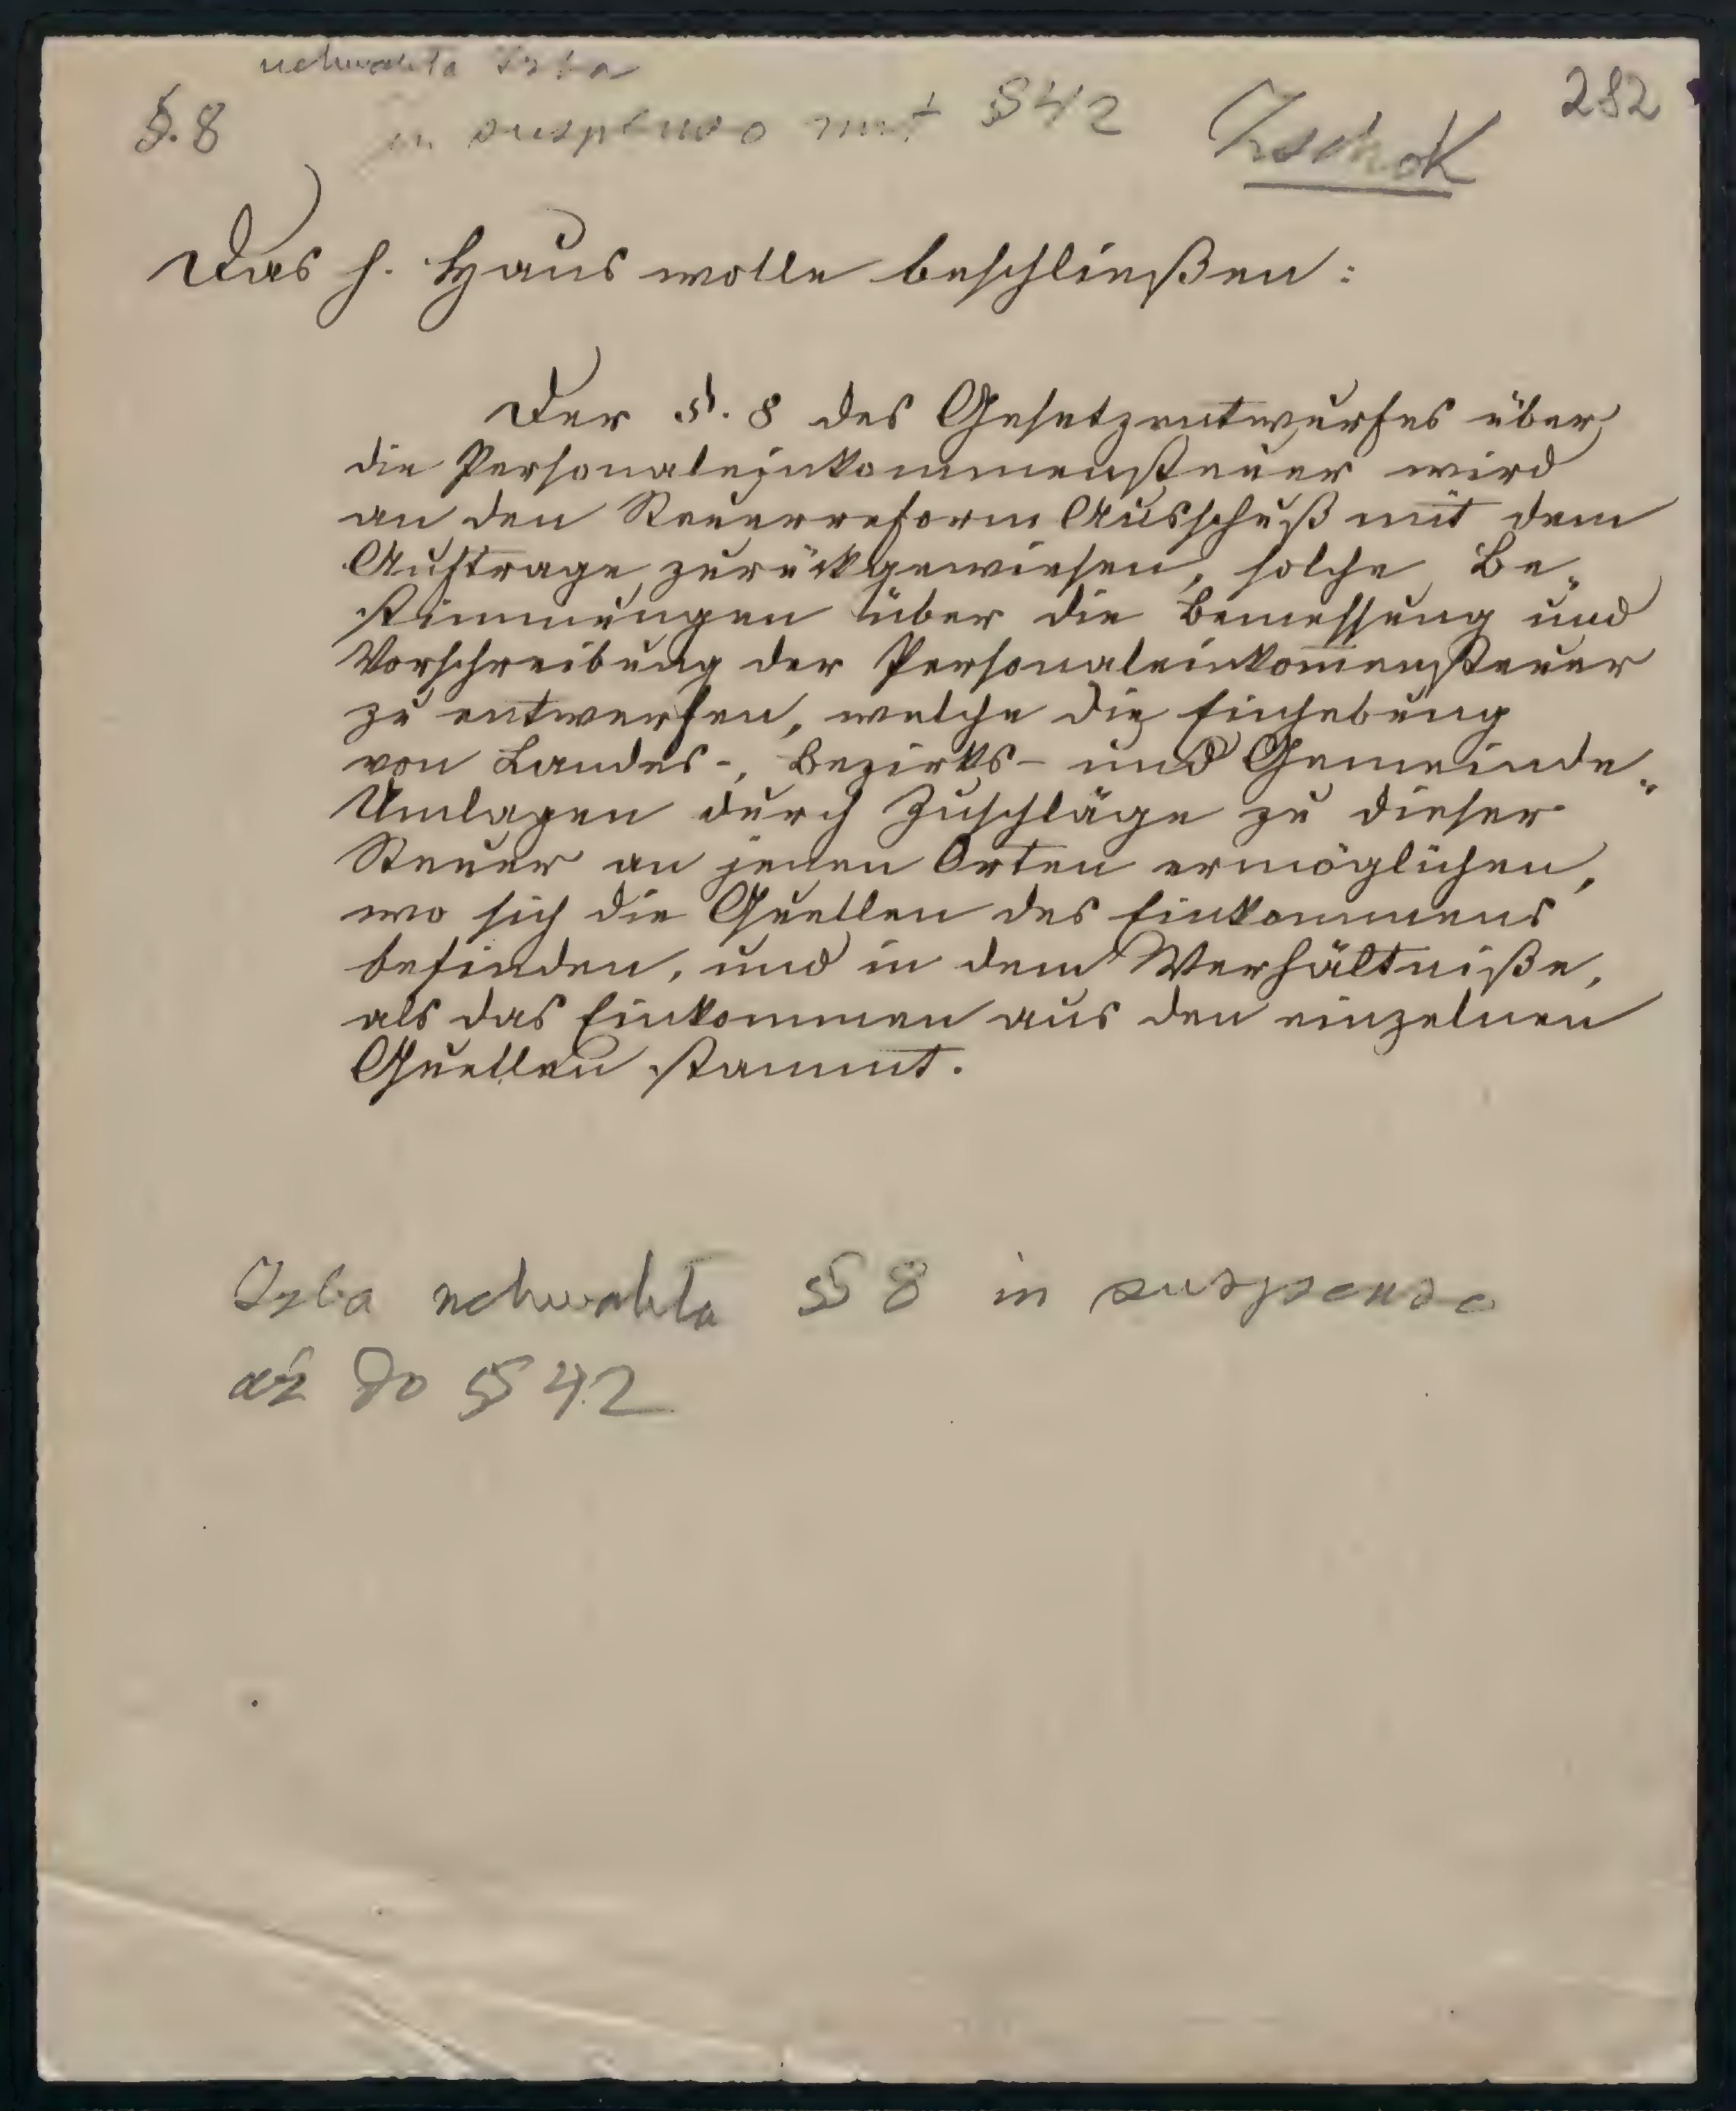 uchwaliła Izba
§. 8 in suspenso mit § 42 282
Das h. Haus wolle beschließen:
Der §. 8 des Gesetzentwurfes über
die Personaleinkommensteuer wird
an den Steuerreform Ausschuß mit dem
Auftrage zurückgewiesen, solche Be„
stimmungen über die Bemessung und
Vorschreibung der Personaleinkom̅ensteuer
zu entwerfen, welche die Einhebung
von Landes-, Bezirks- und Gemeinde„
Umlagen durch Zuschläge zu dieser
Steuer an jenen Orten ermöglichen,
wo sich die Quellen des Einkommens
befinden, und in dem Verhältniße,
als das Einkommen aus den einzelnen
Quellen stammt.
Izba uchwaliła § 8 in suspenso
aż do § 42